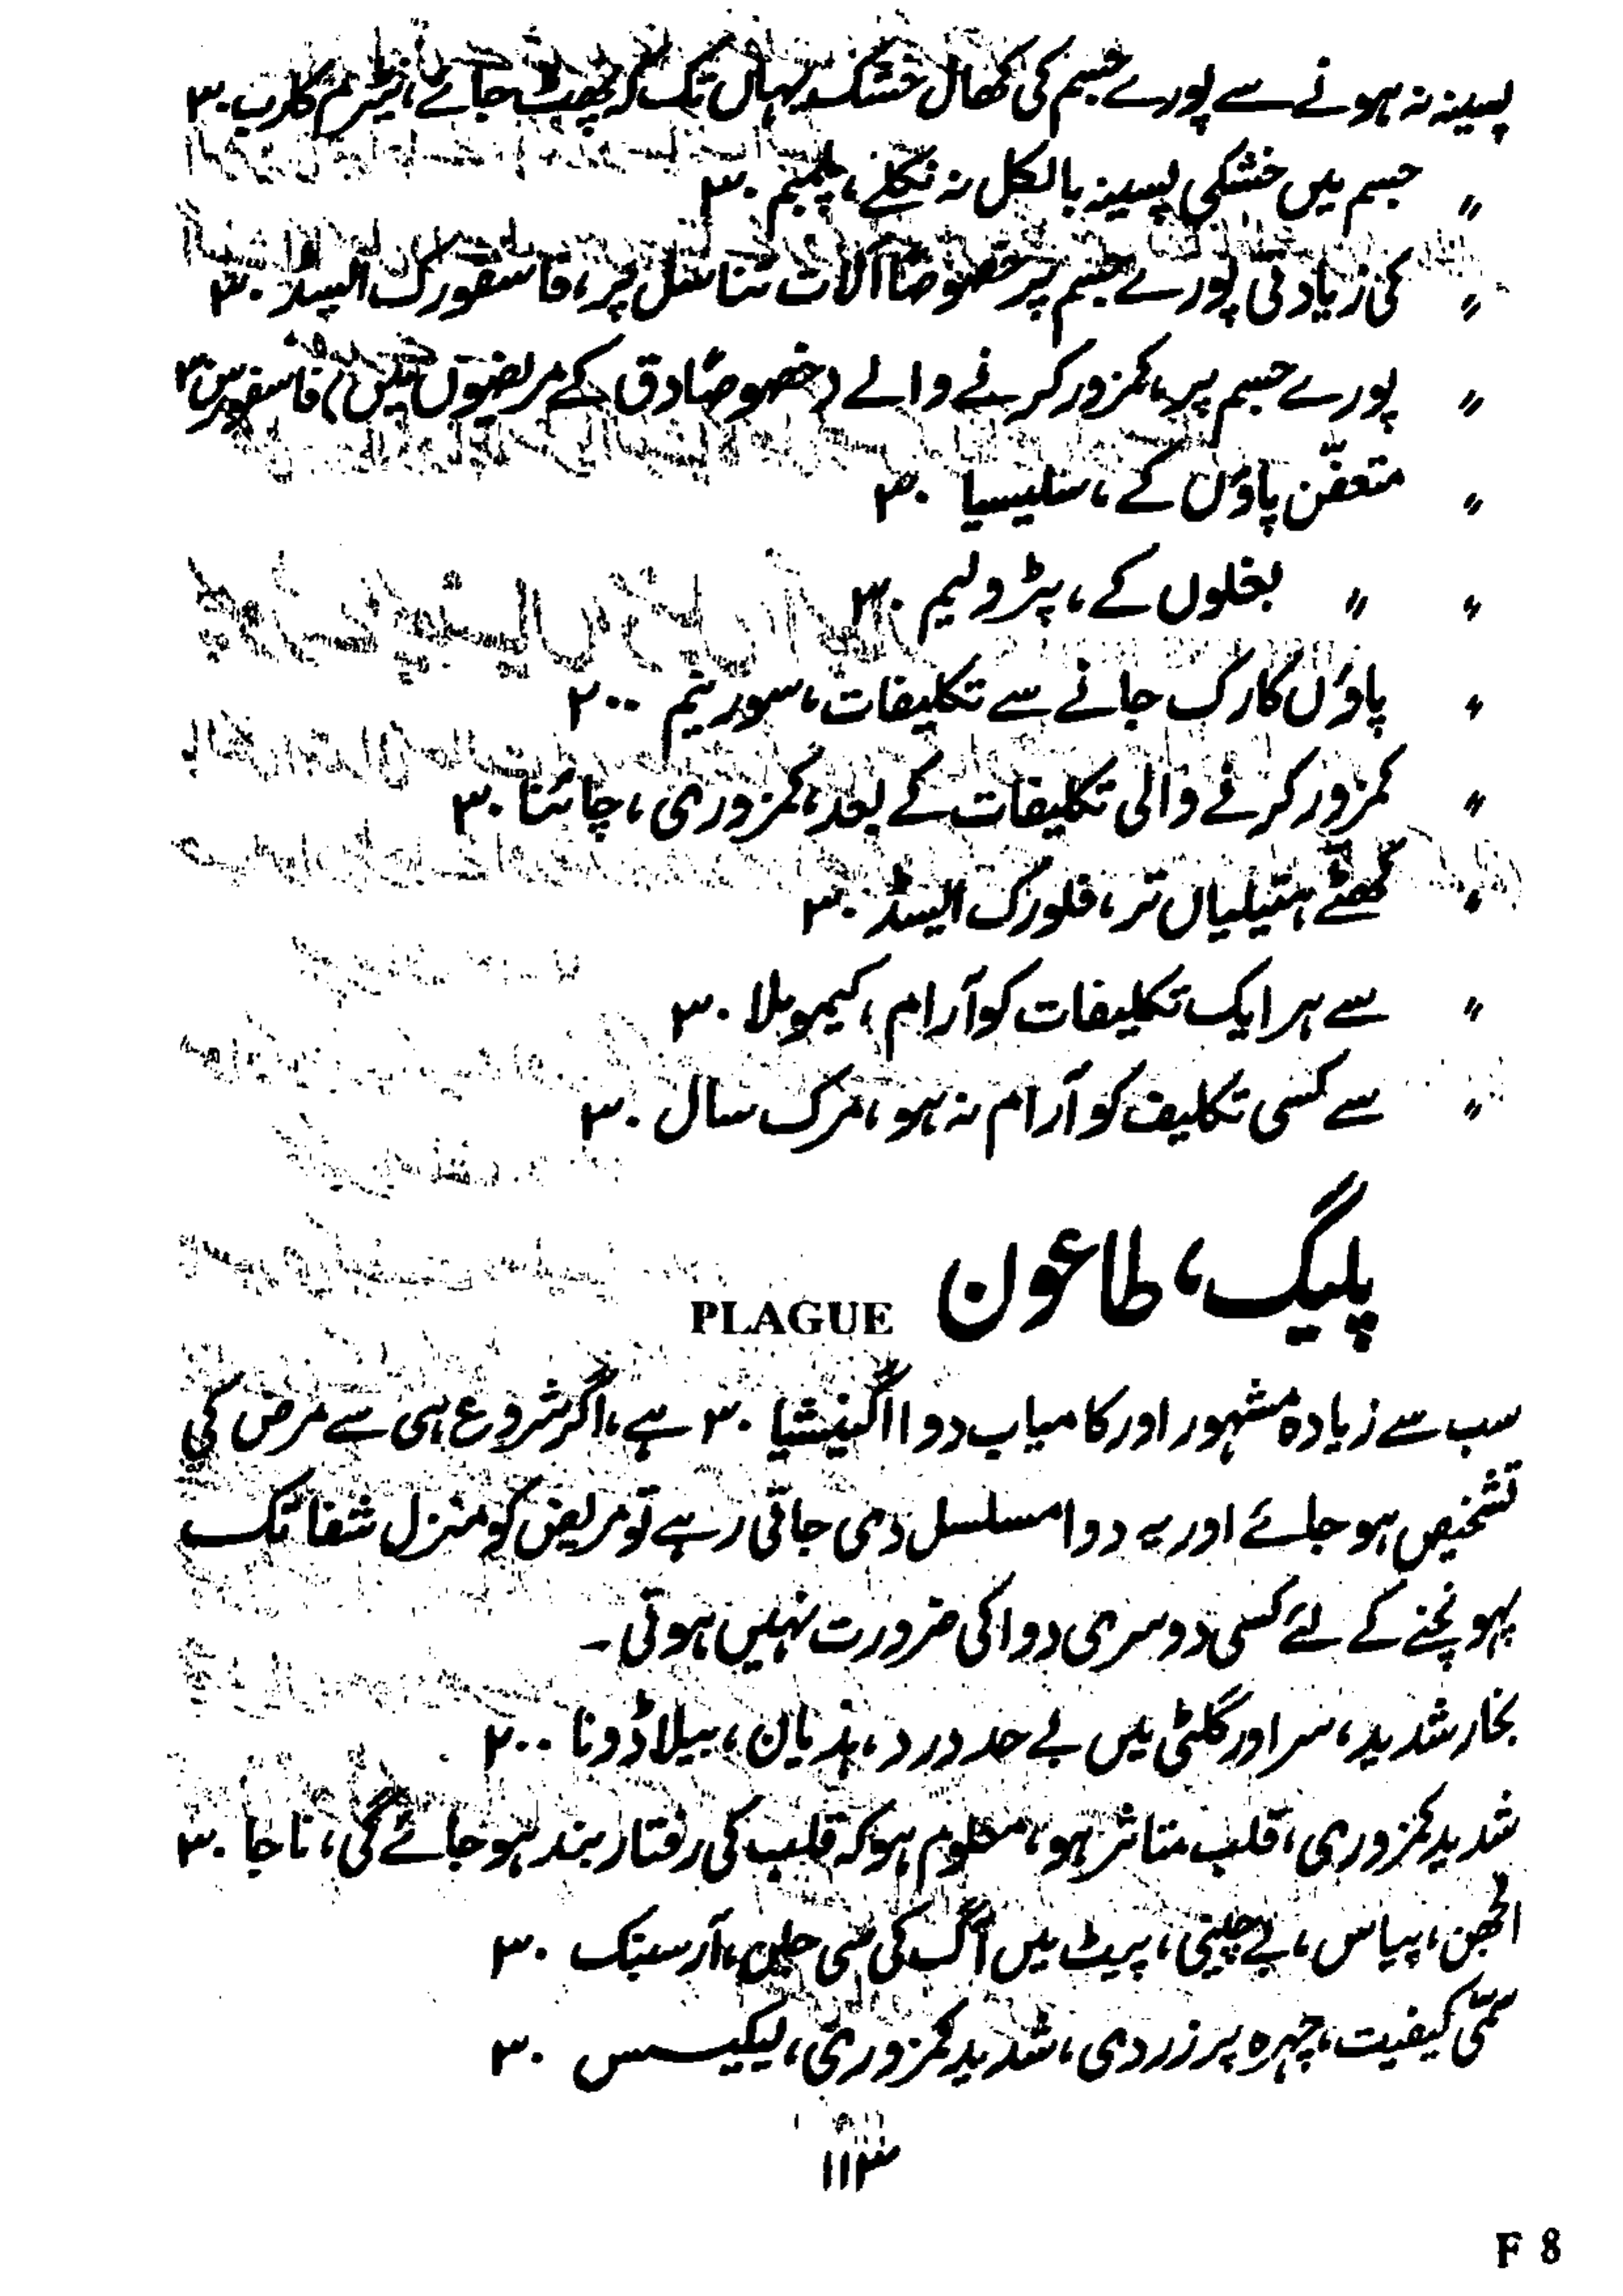 پسینہ نہ ہونے سے پورے جسم کی کھال خشک یہاں تک کہ پھٹ جائے، نیٹرم کارب ۳۰
〃 جسم میں خشکی پسینہ بالکل نہ نکلے، پلمبم ۳۰
〃 کی زیادتی پورے جسم پر خصوصاً آلات تناسل پر، فاسفورک ایسڈ ۳۰
〃 پورے جسم پر، کمزور کرنے والے (خصوصاً دق کے مریضوں میں) فاسفورس ۳
〃 متعفّن پاؤں کے، سلیسیا ۳۰
〃 〃 بغلوں کے، پٹرولیم ۳۰
〃 پاؤں کا رک جانے سے تکلیفات، سورینم ۲۰۰
〃 کمزور کرنے والی تکلیفات کے بعد، کمزوری، چائنا ۳۰
〃 کھٹے ہتیلیاں تر، فلورک ایسڈ ۳۰
〃 سے ہر ایک تکلیفات کو آرام، کیموملا ۳۰
〃 سے کسی تکلیف کو آرام نہ ہو، مرک سال ۳۰
پلیگ، طاعون PLAGUE
سب سے زیادہ مشہور اور کامیاب دوا اگنیشیا ۳۰ ہے، اگر شروع ہی سے مرض کی
تشخیص ہو جائے اور یہ دوا مسلسل دی جاتی رہے تو مریض کو منزل شفا تک
پہونچنے کے لئے کسی دوسری دوا کی ضرورت نہیں ہوتی۔
بخار شدید، سر اور گلٹی میں بے حد درد، ہذیان، بیلاڈونا ۲۰۰
شدید کمزوری، قلب متاثر ہو، معلوم ہو کہ قلب کی رفتار بند ہو جائے گی، ناجا ۳۰
الجھن، پیاس، بے چینی، پیٹ میں آگ کی سی جلن، آرسینک ۳۰
سمّی کیفیت، چہرہ پر زردی، شدید کمزوری، لیکیسس ۳۰
۱۱۳
F 8